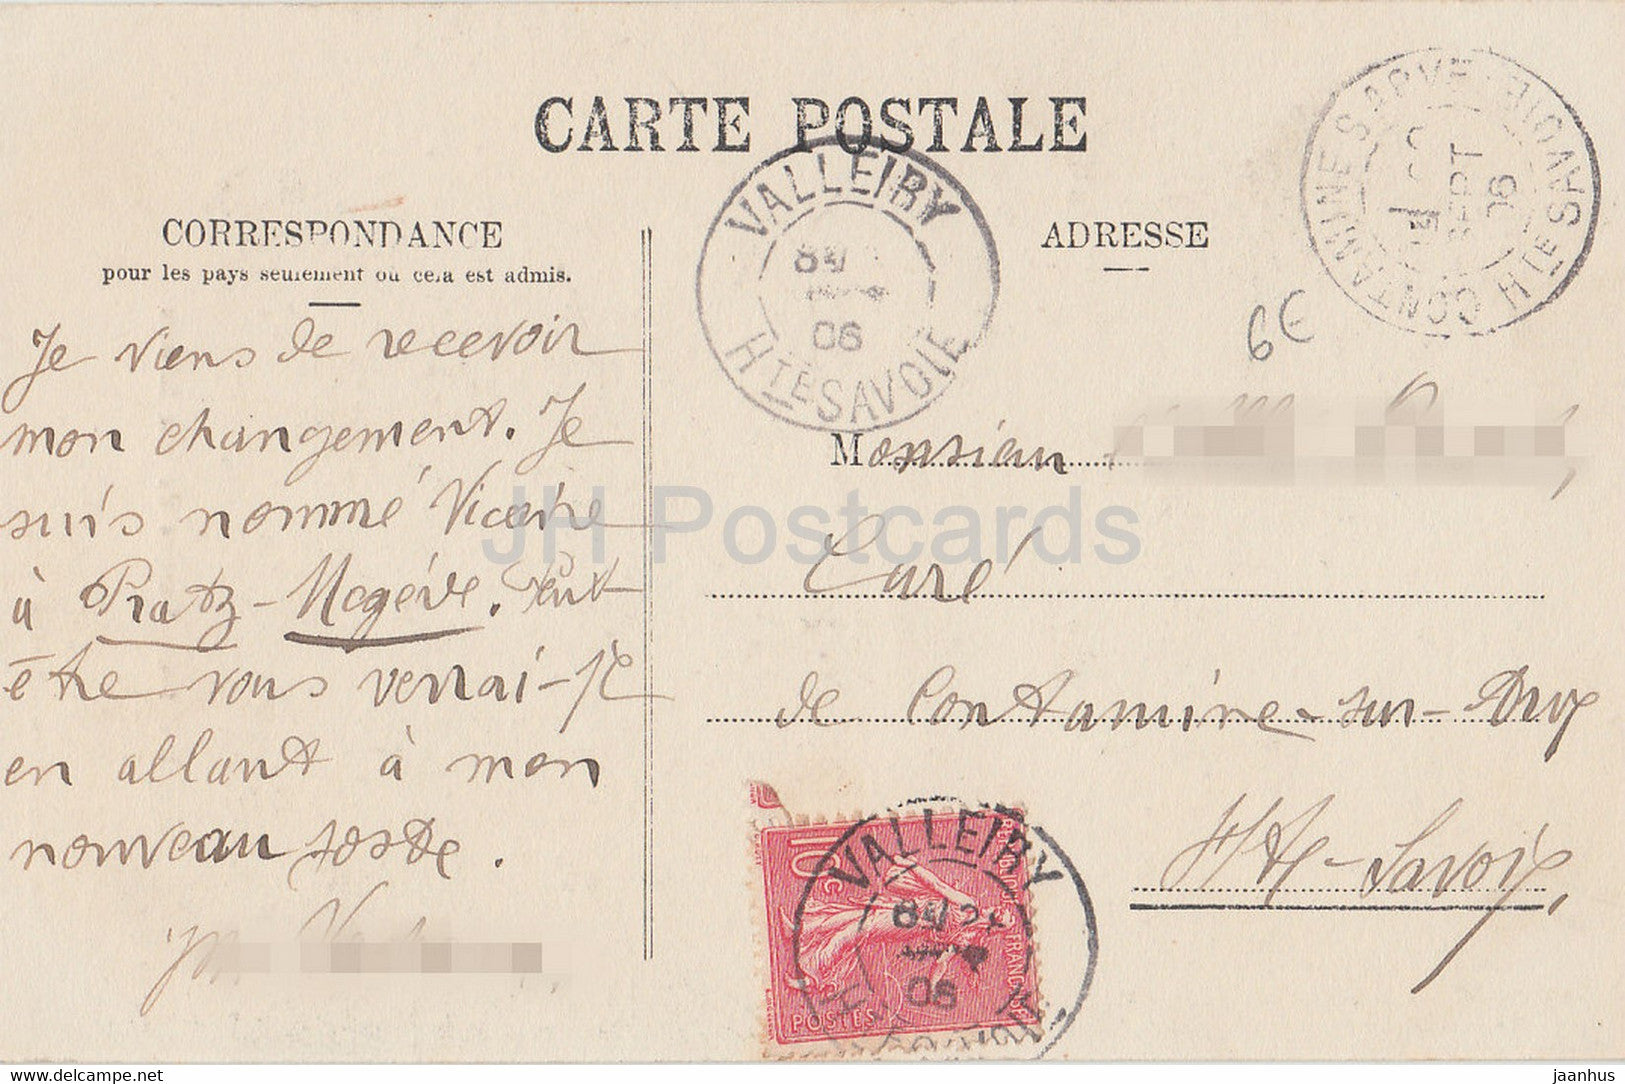 CARTE POSTALE
CORRESPONDANCE
pour les pays seulement ou cela est admis.
Je viens de recevoir
mon changement. Je
suis nommé Vicaire
à Pratz-Megève. Peut
être vous verrai-je
en allant à mon
nouveau poste.
VALLEIRY
06
HTE SAVOIE
ADRESSE
CONTAMINE S. ARVE
SEPT
06
HTE SAVOIE
6E
Monsieur
Curé
de Contamine-sur-Arve
Hte-Savoie,
10c
POSTES
FRANÇAISE
VALLEIRY
06
JH Postcards
www.delcampe.net
jaanhus